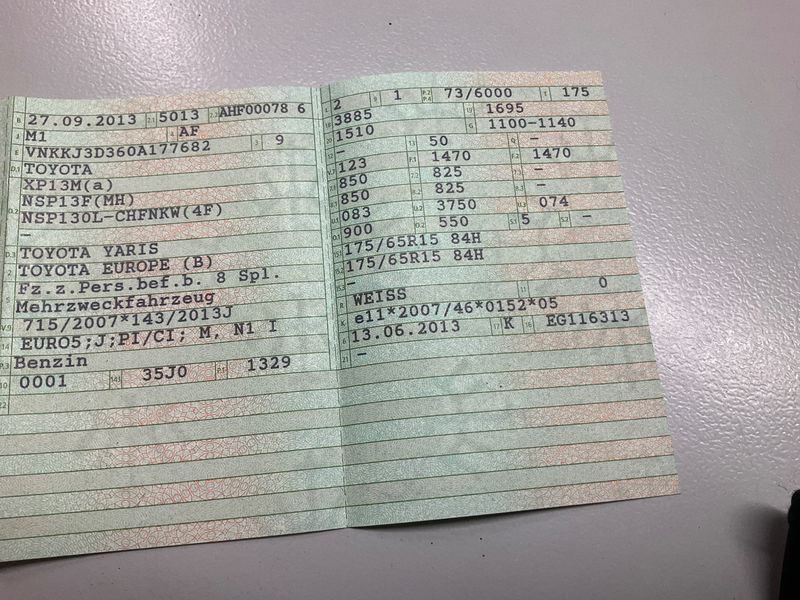 B 27.09.2013 2.1 5013 2.2 AHF00078 6
J M1 4 AF
E VNKKJ3D360A177682 3 9
D.1 TOYOTA
XP13M(a)
D.2 NSP13F(MH)
NSP130L-CHFNKW(4F)
–
D.3 TOYOTA YARIS
2 TOYOTA EUROPE (B)
5 Fz.z.Pers.bef.b. 8 Spl.
Mehrzweckfahrzeug
V.9 715/2007*143/2013J
14 EURO5;J;PI/CI; M, N1 I
P.3 Benzin
10 0001 14.1 35J0 P.1 1329
22
L 2 9 1 P.2 P.4 73/6000 T 175
18 3885 19 1695
20 1510 G 1100-1140
12 – 13 50 Q –
V.7 123 F.1 1470 F.2 1470
7.1 850 7.2 825 7.3 –
8.1 850 8.2 825 8.3 –
U.1 083 U.2 3750 U.3 074
O.1 900 O.2 550 S.1 5 S.2 –
15.1 175/65R15 84H
15.2 175/65R15 84H
15.3 –
R WEISS 11 0
K e11*2007/46*0152*05
6 13.06.2013 17 K 16 EG116313
21 –